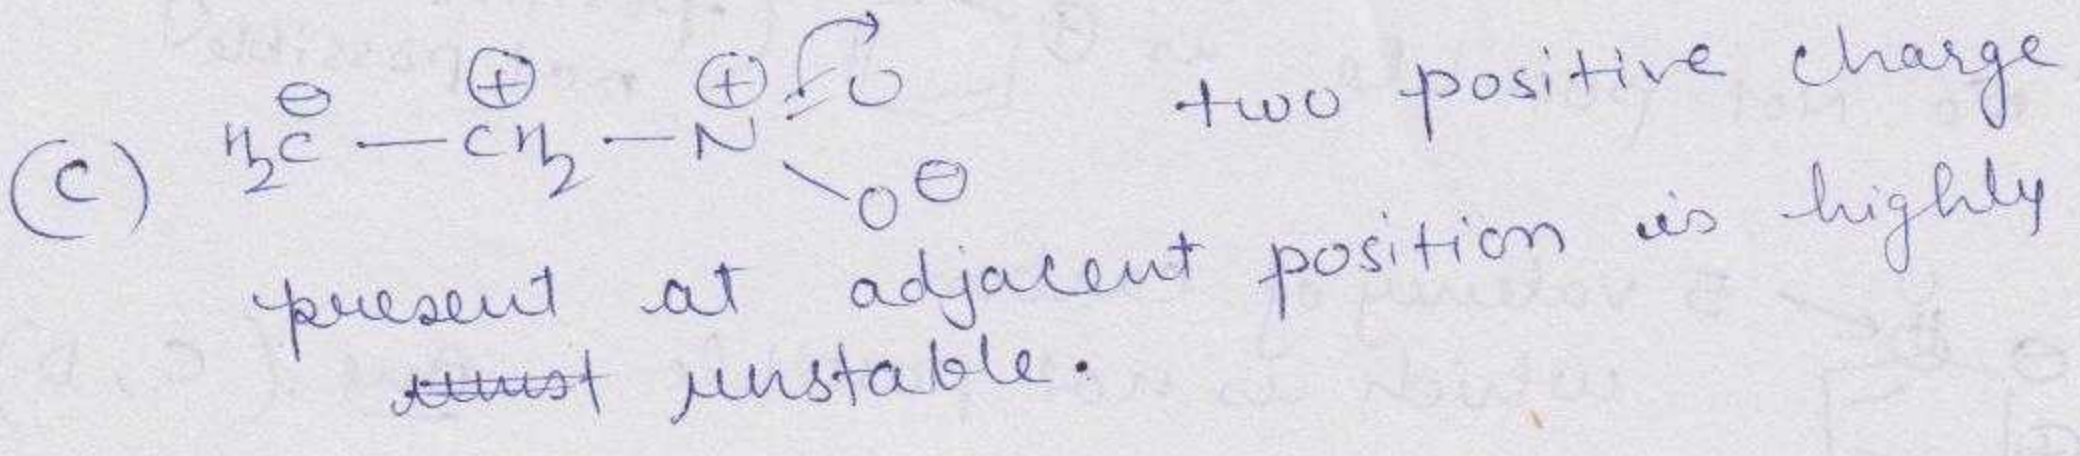 (C) H₂C⊖ — CH₂⊕ — N⊕ = O two positive charge
O⊖
present at adjacent position is highly
unstable.